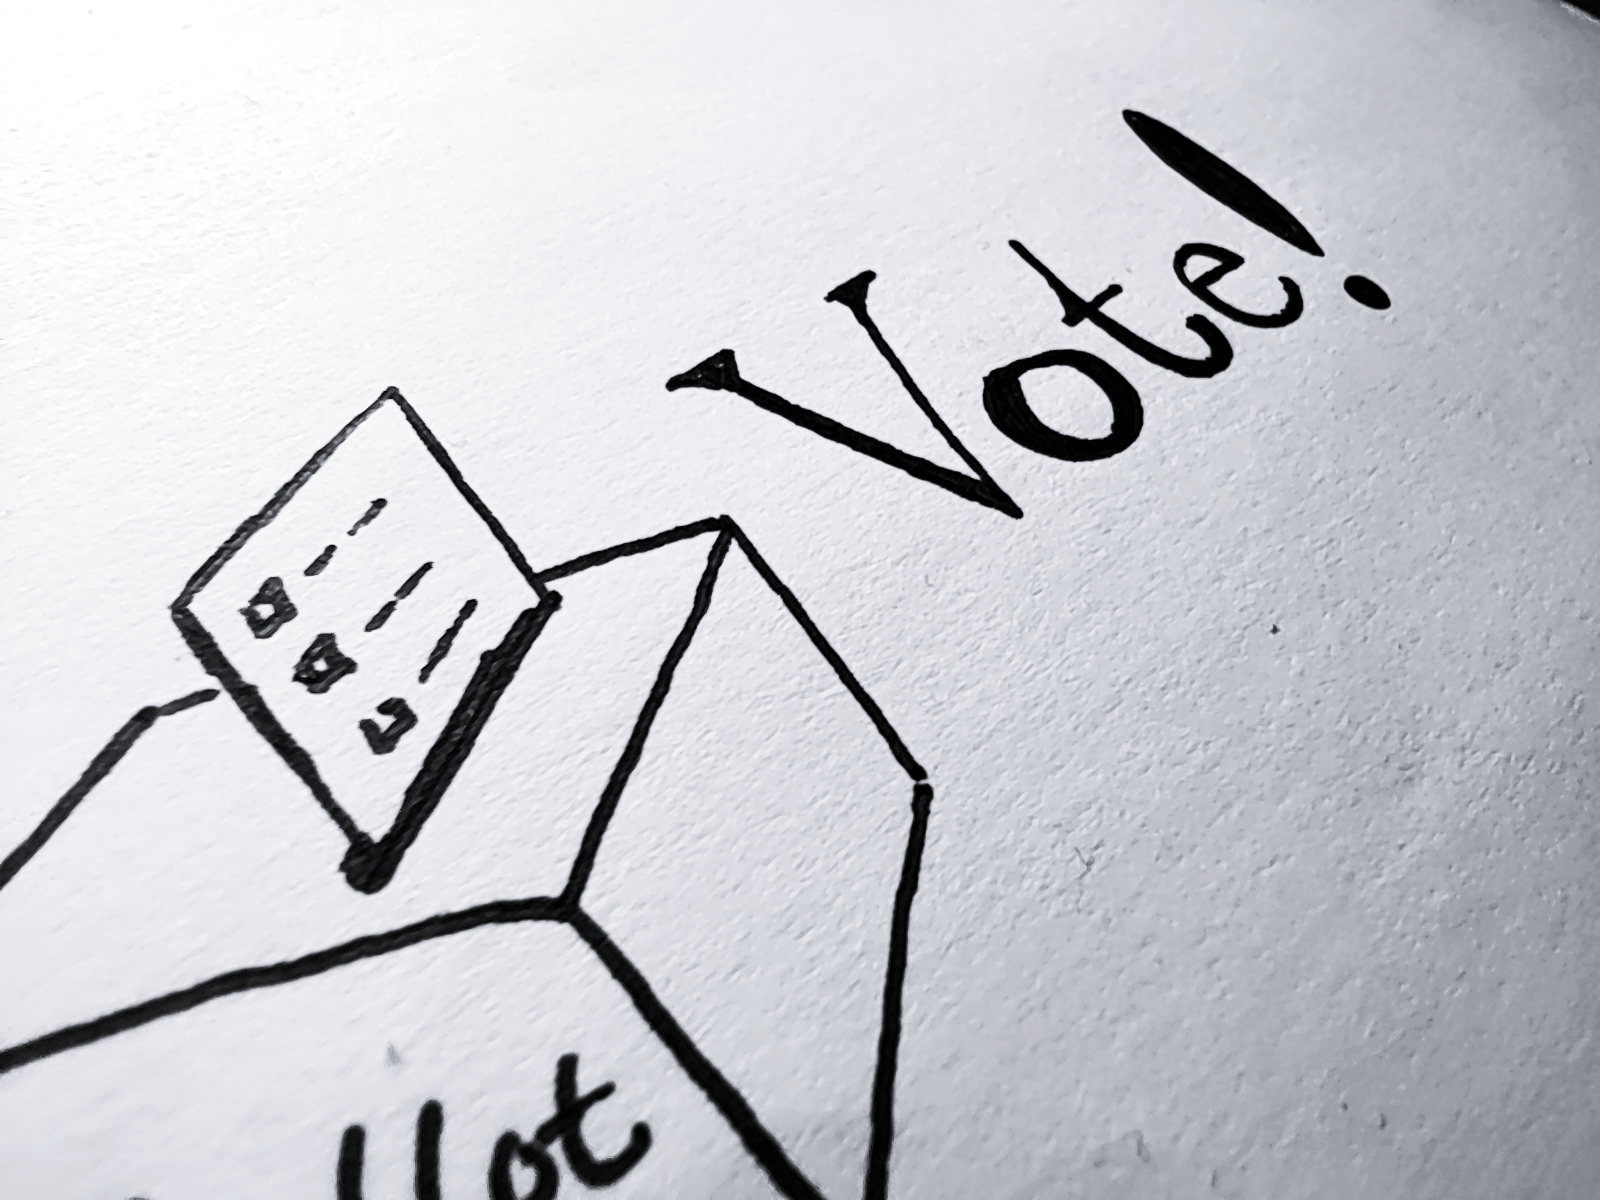 Vote!
llot